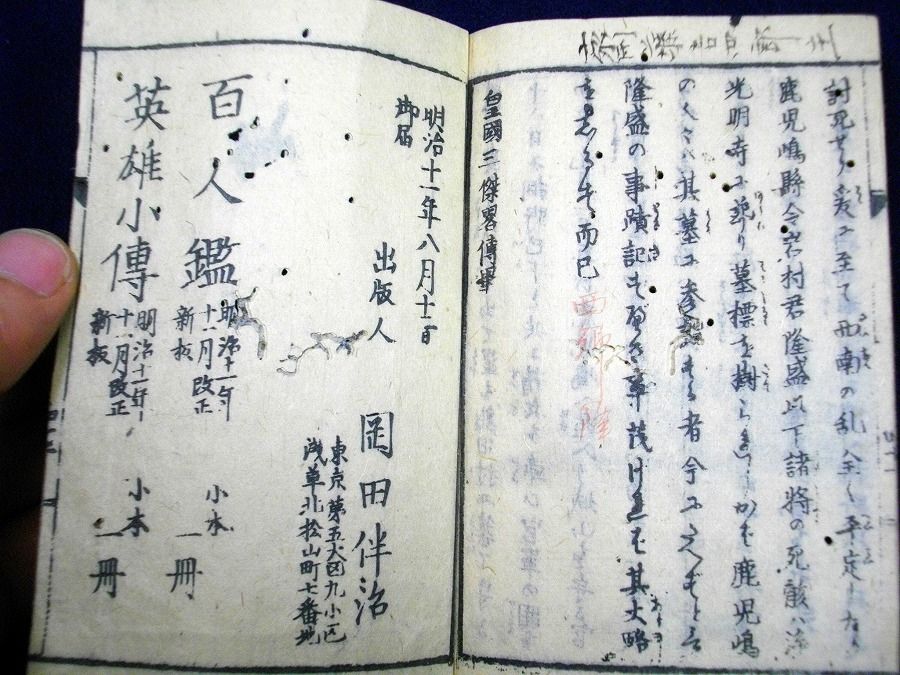 討死せり爰に至て西南の乱全く平定したり
鹿児嶋縣令岩村君隆盛以下諸将の死骸ハ浄
光明寺に葬り墓標を樹らる かば鹿児嶋
の人々ハ其墓に参 する者今に たえずと云
隆盛の事蹟記すべき事茂けれど其大略
を志るす而已
皇國三傑畧傳畢
明治十一年八月十二日
御届
出版人 岡田伴治
東京第五大区九小区
浅草北松山町七番地
百人鑑 明治十一年十一月改正新板 小本一冊
英雄小傳 明治十一年十一月改正新板 小本一冊